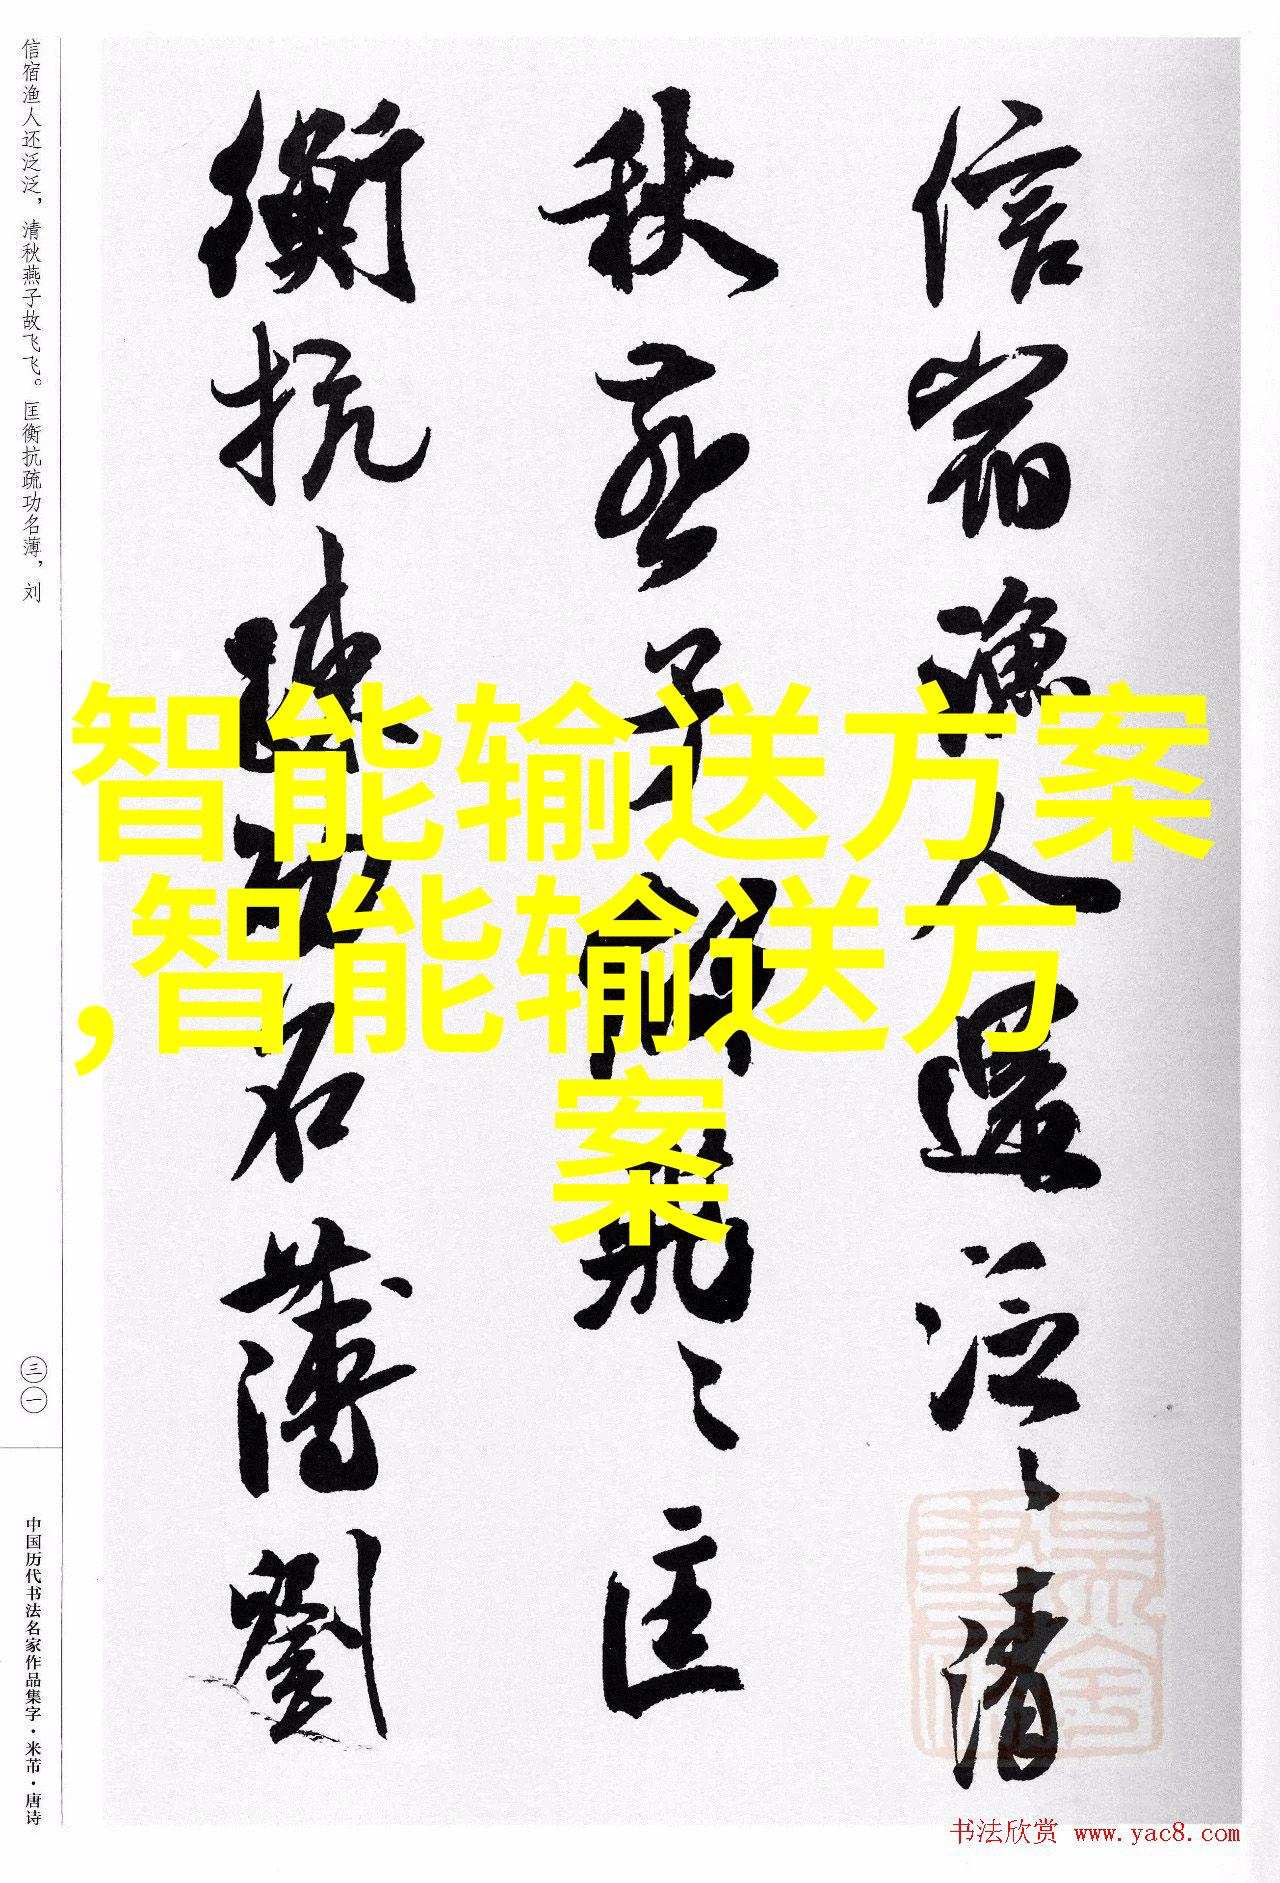 信宿渔人还泛泛，清秋燕子故飞飞。匡衡抗疏功名薄，刘
三一
中国历代书法名家作品集字·米芾·唐诗
信宿漁人還泛〻清
秋燕子故飛〻匡
衡抗疏功名薄劉
智能输送方案
,智能输送方
案
书法欣赏 www.yac8.com